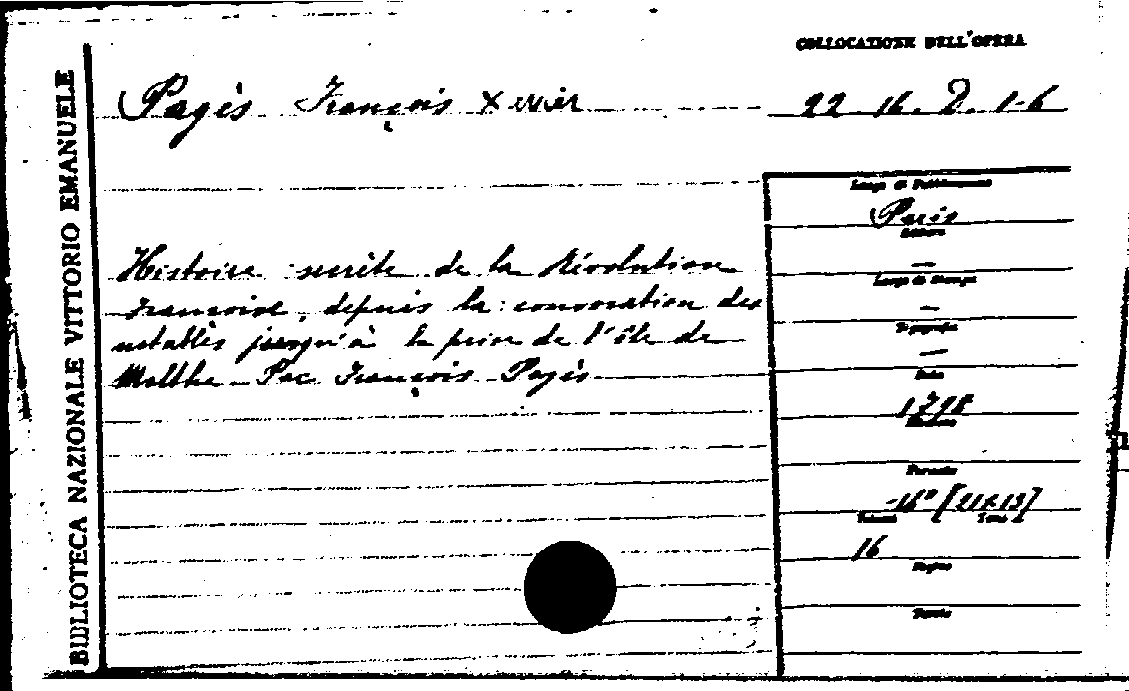 BIBLIOTECA NAZIONALE VITTORIO EMANUELE
COLLOCAZIONE DELL'OPERA
Pagès François Xavier
22 16. D. 1-6
Luogo di Pubblicazione
Paris
Editore
—
Luogo di Stampa
—
Tipografia
—
Data
1798
Histoire secrète de la Révolution
Françoise, depuis la convocation des
notables jusqu'à la prise de l'île de
Malthe Par François Pagès
Formato
16° [21x13]
Volumi Tomi
16
Pagine
Tavole